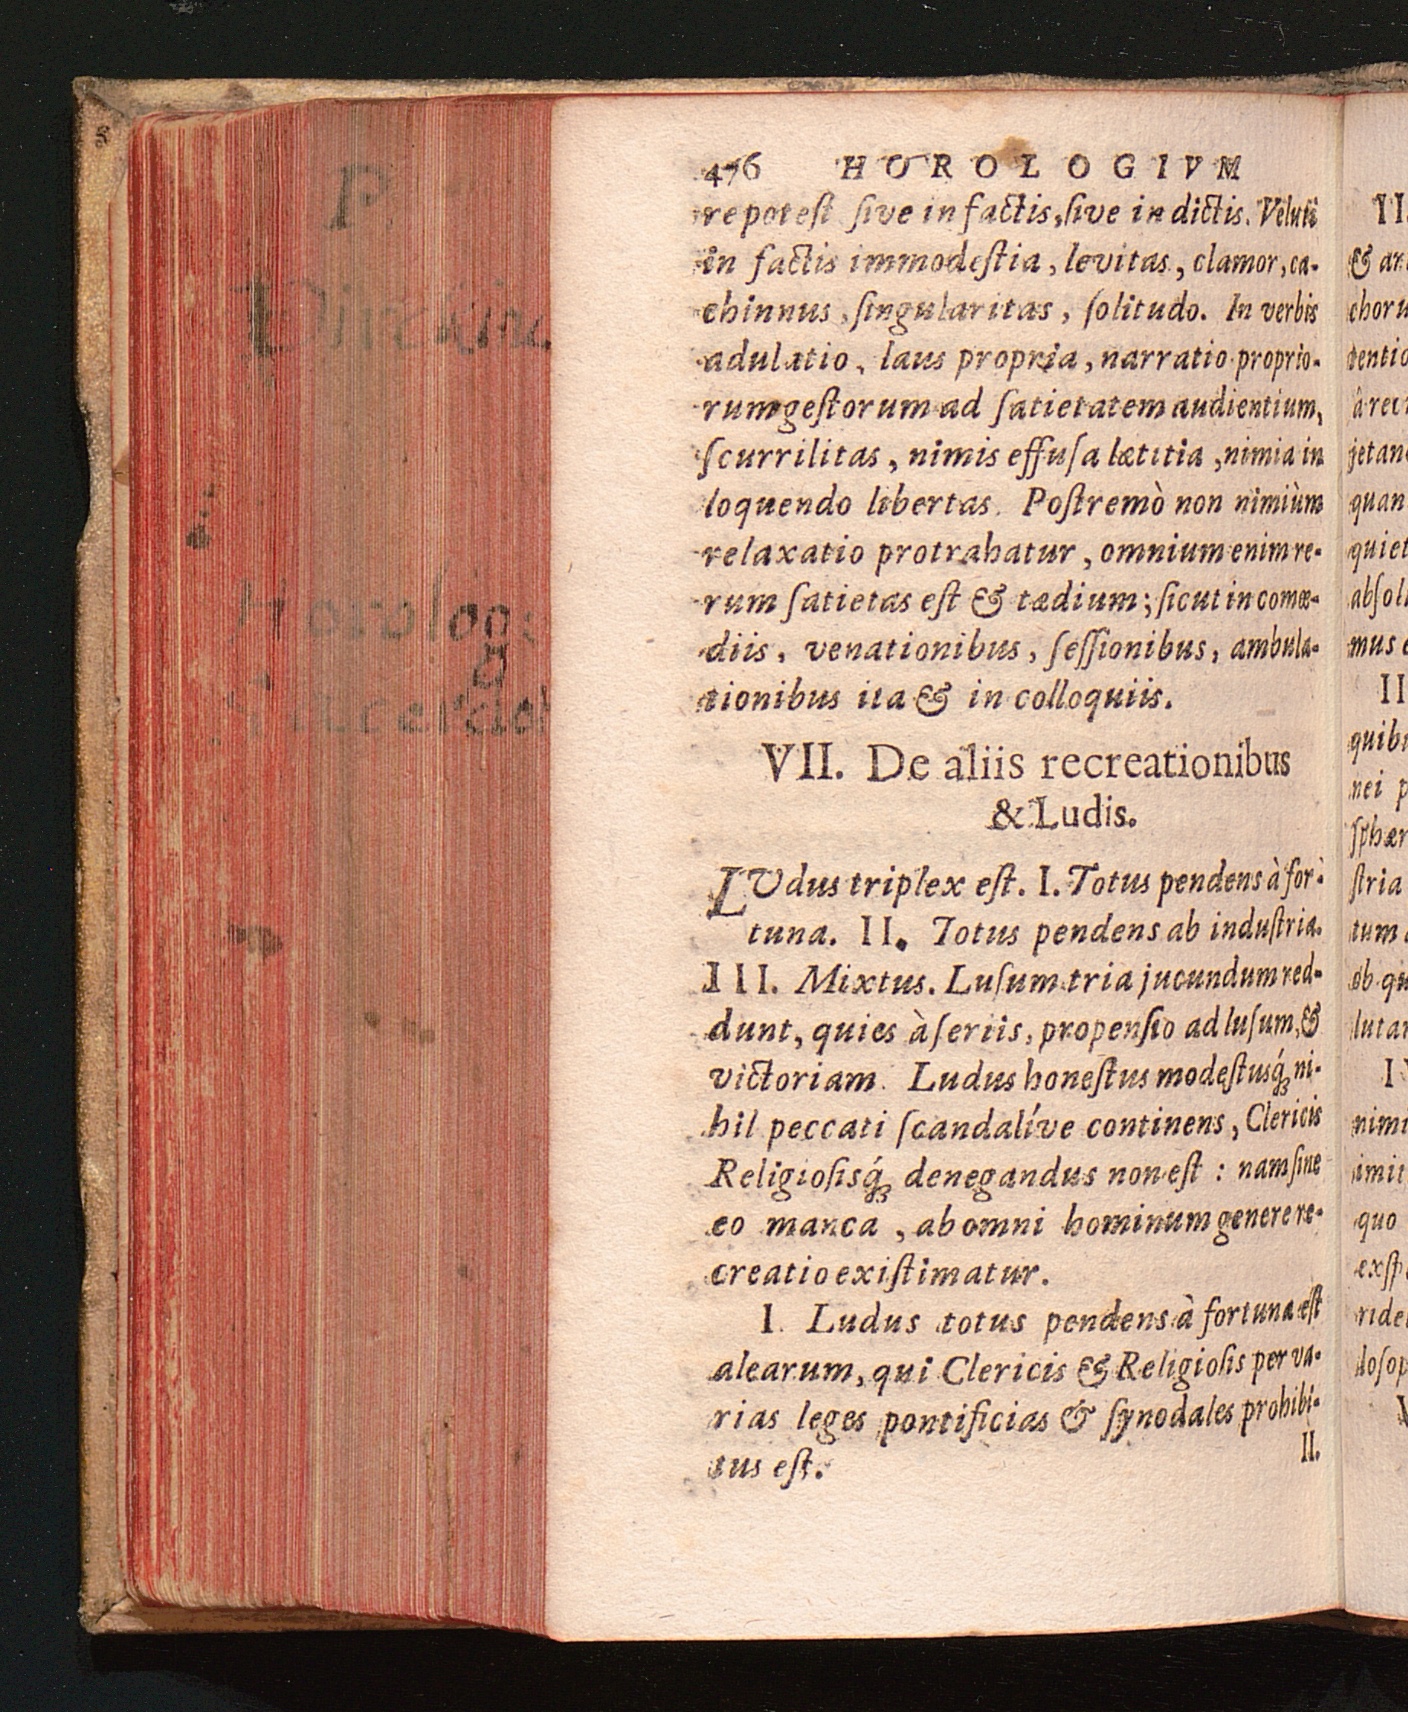 476 HOROLOGIVM
re potest sive in factis, sive in dictis. Veluti
in factis immodestia, levitas, clamor, ca-
chinnus, singularitas, solitudo. In verbis
adulatio, laus propria, narratio proprio-
rum gestorum ad satietatem audientium,
scurrilitas, nimis effusa lætitia, nimia in
loquendo libertas. Postremò non nimiùm
relaxatio protrahatur, omnium enim re-
rum satietas est & tædium; sicut in comœ-
diis, venationibus, sessionibus, ambula-
tionibus ita & in colloquiis.
VII. De aliis recreationibus
& Ludis.
LUdus triplex est. I. Totus pendens à for-
tuna. II. Totus pendens ab industria.
III. Mixtus. Lusum tria jucundum red-
dunt, quies à seriis, propensio ad lusum, &
victoriam. Ludus honestus modestusq́; ni-
hil peccati scandalíve continens, Clericis
Religiosisq́; denegandus non est: nam sine
eo manca, ab omni hominum genere re-
creatio existimatur.
I. Ludus totus pendens à fortuna est
alearum, qui Clericis & Religiosis per va-
rias leges pontificias & synodales prohibi-
tus est.
II.
II.
& ar
choru
tentio
à recr
jetan
quan
quiet
absol
mus
II
quib
nei p
sphær
stria
tum
ob qu
lutar
I
nimi
imit
quo
exsp
ride
losop